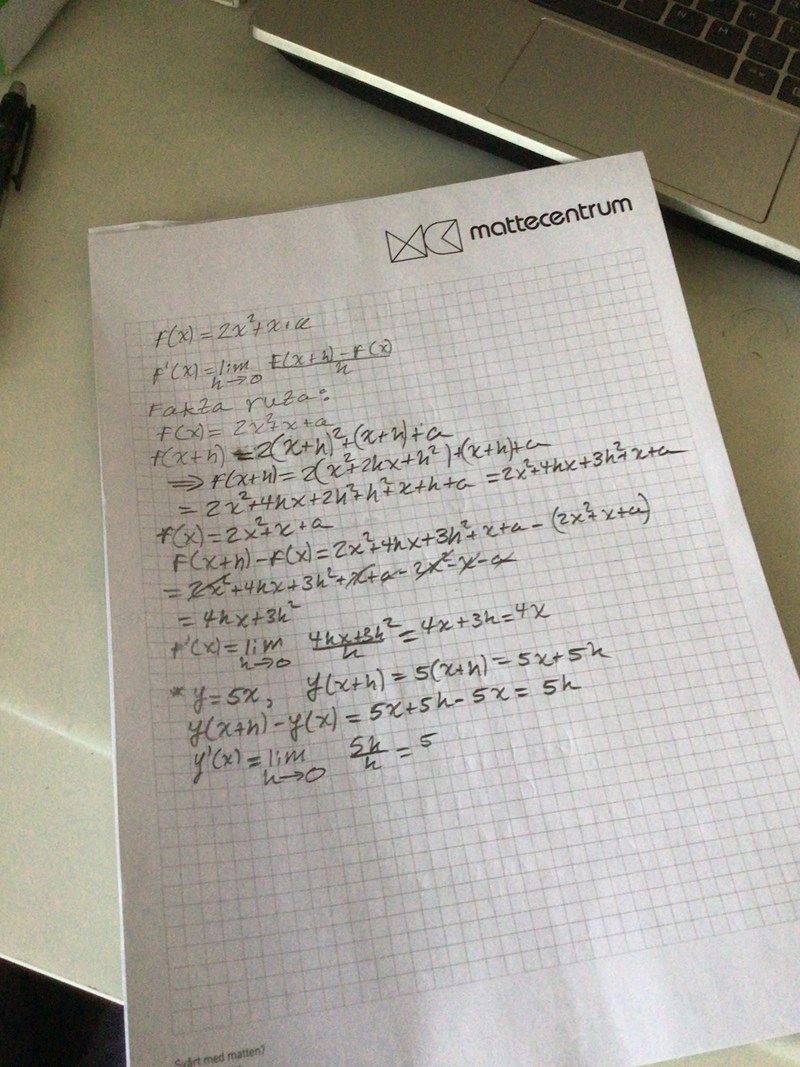 mattecentrum
f(x) = 2x²+x+a
f'(x) = lim h→0 f(x+h)-f(x)/h
Fakta ruta:
f(x) = 2x²+x+a
f(x+h) = 2(x+h)²+(x+h)+a
⇒ f(x+h) = 2(x²+2hx+h²)+(x+h)+a
= 2x²+4hx+2h²+h²+x+h+a = 2x²+4hx+3h²+x+a
f(x) = 2x²+x+a
f(x+h)-f(x) = 2x²+4hx+3h²+x+a-(2x²+x+a)
= 2x²+4hx+3h²+x+a-2x²-x-a
= 4hx+3h²
f'(x) = lim h→0 4hx+3h²/h = 4x+3h = 4x
* y=5x, y(x+h) = 5(x+h) = 5x+5h
y(x+h)-y(x) = 5x+5h-5x = 5h
y'(x) = lim h→0 5h/h = 5
Svårt med matten?